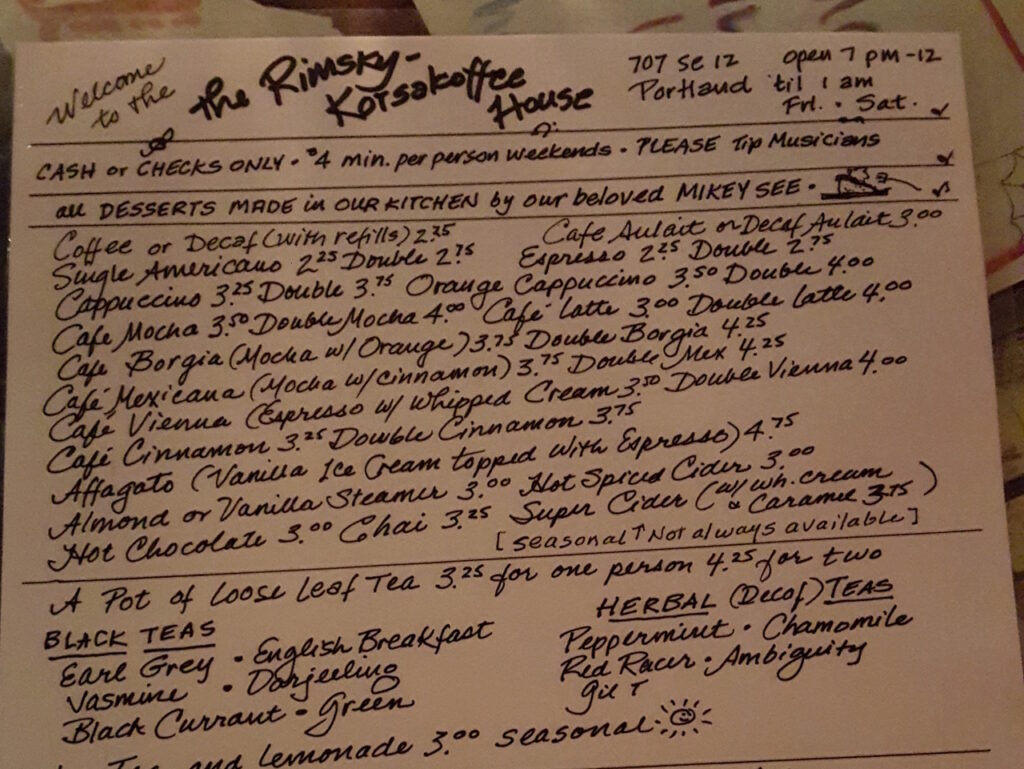 Welcome to the
the Rimsky-
Korsakoffee
House
707 SE 12
Portland
open 7 pm - 12
'til 1 am
Fri. • Sat.
CASH or CHECKS ONLY • $4 min. per person weekends • PLEASE Tip Musicians
all DESSERTS MADE in OUR KITCHEN by our beloved MIKEY SEE •
Coffee or Decaf (with refills) 2.75 Cafe Aulait or Decaf Aulait 3.00
Single Americano 2.25 Double 2.75 Espresso 2.25 Double 2.75
Cappuccino 3.25 Double 3.75 Orange Cappuccino 3.50 Double 4.00
Cafe Mocha 3.50 Double Mocha 4.00 Café Latte 3.00 Double Latte 4.00
Cafe Borgia (Mocha w/ Orange) 3.75 Double Borgia 4.25
Café Mexicana (Mocha w/cinnamon) 3.75 Double Mex 4.25
Café Vienna (Espresso w/ Whipped Cream 3.50 Double Vienna 4.00
Café Cinnamon 3.25 Double Cinnamon 3.75
Affagato (Vanilla Ice Cream topped with Espresso) 4.75
Almond or Vanilla Steamer 3.00 Hot Spiced Cider 3.00
Hot Chocolate 3.00 Chai 3.25 Super Cider (w/ wh. cream & Caramel 3.75)
[seasonal ↑ Not always available]
A Pot of Loose Leaf Tea 3.25 for one person 4.25 for two
BLACK TEAS
Earl Grey • English Breakfast
Jasmine • Darjeeling
Black Currant • Green
HERBAL (Decaf) TEAS
Peppermint • Chamomile
Red Racer • Ambiguity
Gil T
Tea and Lemonade 3.00 seasonal